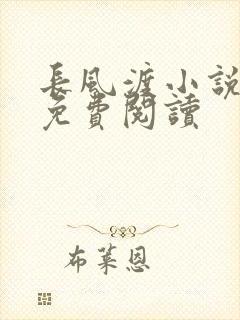 長風渡小說
免費閱讀
布萊恩